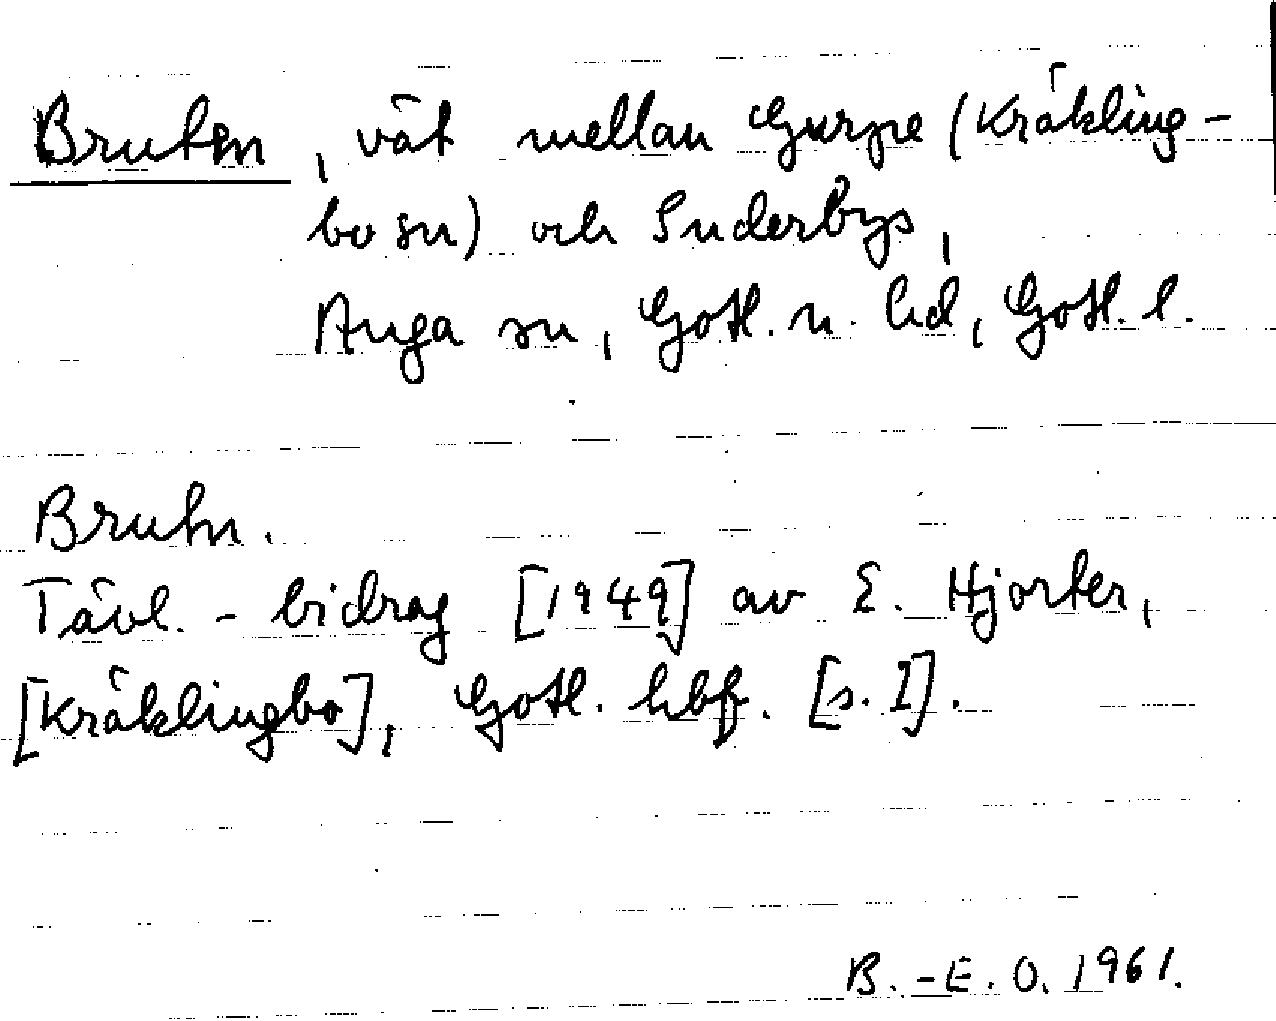 Bruten, vät mellan Gurpe (Kräkling-
bo sn) och Suderbys,
Anga sn, Gotl. n. hd, Gotl. l.
Brutn.
Tävl.-bidrag [1949] av E. Hjorter,
[Kräklingbo], Gotl. hbf. [s. I].
B.-E. O. 1961.